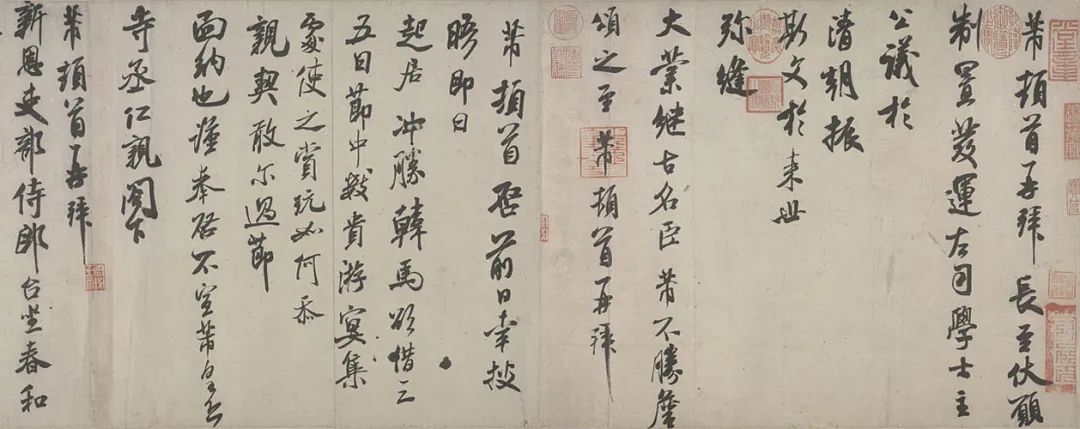 芾頓首再拜 長至伏願
制置發運左司學士主
公議於
清朝振
斯文於来世
弥縫
大業継古名臣 芾不勝詹
頌之至 芾頓首再拜
芾頓首啓前日幸披
晤即日
起居冲勝韓馬欲借三
五日節中數貴游宴集
處使之賞玩如何忝
親契敢尔過節
面納也謹奉啓不宣芾皇恐
寺丞仁親閣下
芾頓首再拜
新恩吏部侍郎台坐春和